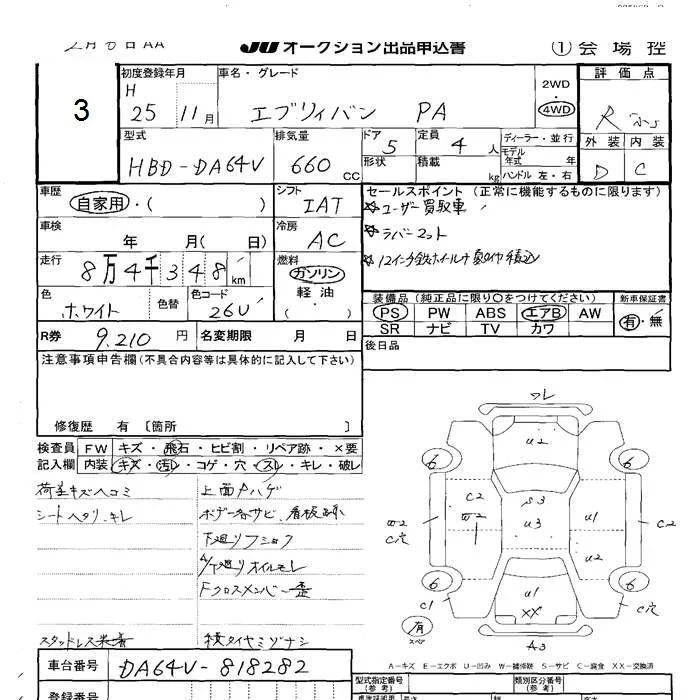 2月6日AA
JU オークション出品申込書
① 会場控
3
初度登録年月
H 25 11月
車名・グレード
エブリィバン PA
2WD
4WD
評価点
R
外装 内装
D C
型式
HBD-DA64V
排気量
660 CC
ドア
5
形状
定員
4人
積載
kg
ディーラー・並行
モデル年式 年
ハンドル 左・右
車歴
自家用・( )
シフト
IAT
セールスポイント (正常に機能するものに限ります)
☆ユーザー買取車
☆ラバーマット
車検
年 月( 日)
冷房
AC
走行
8万4千348km
燃料
ガソリン
軽油
( )
色
ホワイト
色替
色コード
26U
装備品 (純正品に限り〇をつけてください)
新車保証書
PS PW ABS エアB AW
SR ナビ TV カワ
有・無
R券 9,210円
名変期限 月 日
後日品
注意事項申告欄(不具合内容等は具体的に記入して下さい)
修復歴 有 〔箇所 〕
検査員記入欄
FW キズ・飛石・ヒビ割・リペア跡・×要
内装 キズ・汚レ・コゲ・穴・スレ・キレ・破レ
荷室キズヘコミ
シートヘタリ、キレ
上面Pハゲ
ボデー各サビ、看板跡
下廻りフショク
下廻りオイルモレ
Fクロスメンバー歪
スタッドレス装着
積タイヤミゾナシ
ワレ
U2
6 6
C2
S3
U3
U1
C2
C穴
U2
6 6
C1
U1
XX
C穴
有
スペア
A3
A-キズ E-エクボ U-凹み W-補修跡 S-サビ C-腐食 XX-交換済
車台番号
DA64V-818282
登録番号
型式指定番号
(参考)
類別区分番号
(参考)